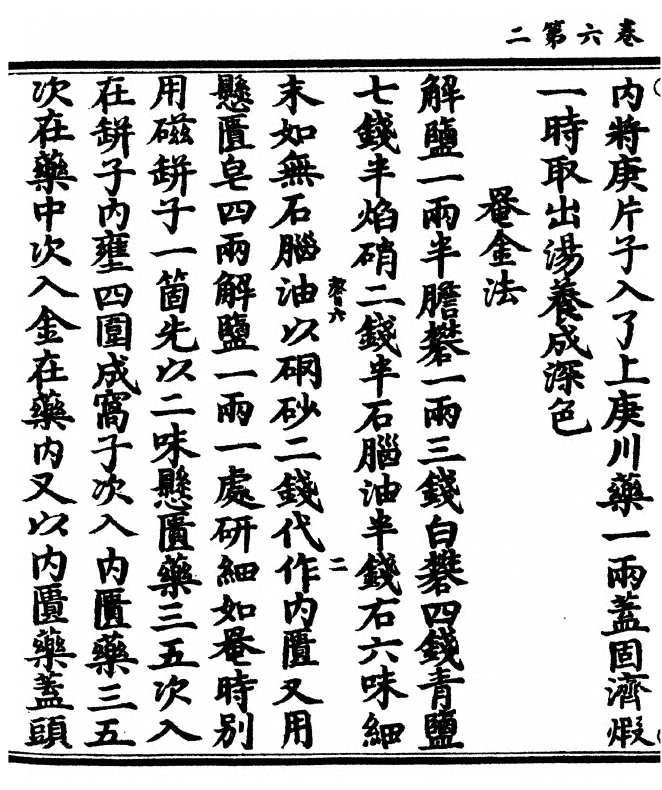 卷六第二
內將庚片子入了上庚川藥一兩蓋固濟煆
一時取出湯養成深色
罨金法
解鹽一兩半膽礬一兩三錢白礬四錢青鹽
七錢半焰硝二錢半石腦油半錢右六味細
末如無石腦油以硇砂二錢代作內匱又用
卷六
二
懸匱皂四兩解鹽一兩一處研細如罨時別
用磁缾子一箇先以二味懸匱藥三五次入
在缾子內壅四圍成窩子次入內匱藥三五
次在藥中次入金在藥內又以內匱藥蓋頭